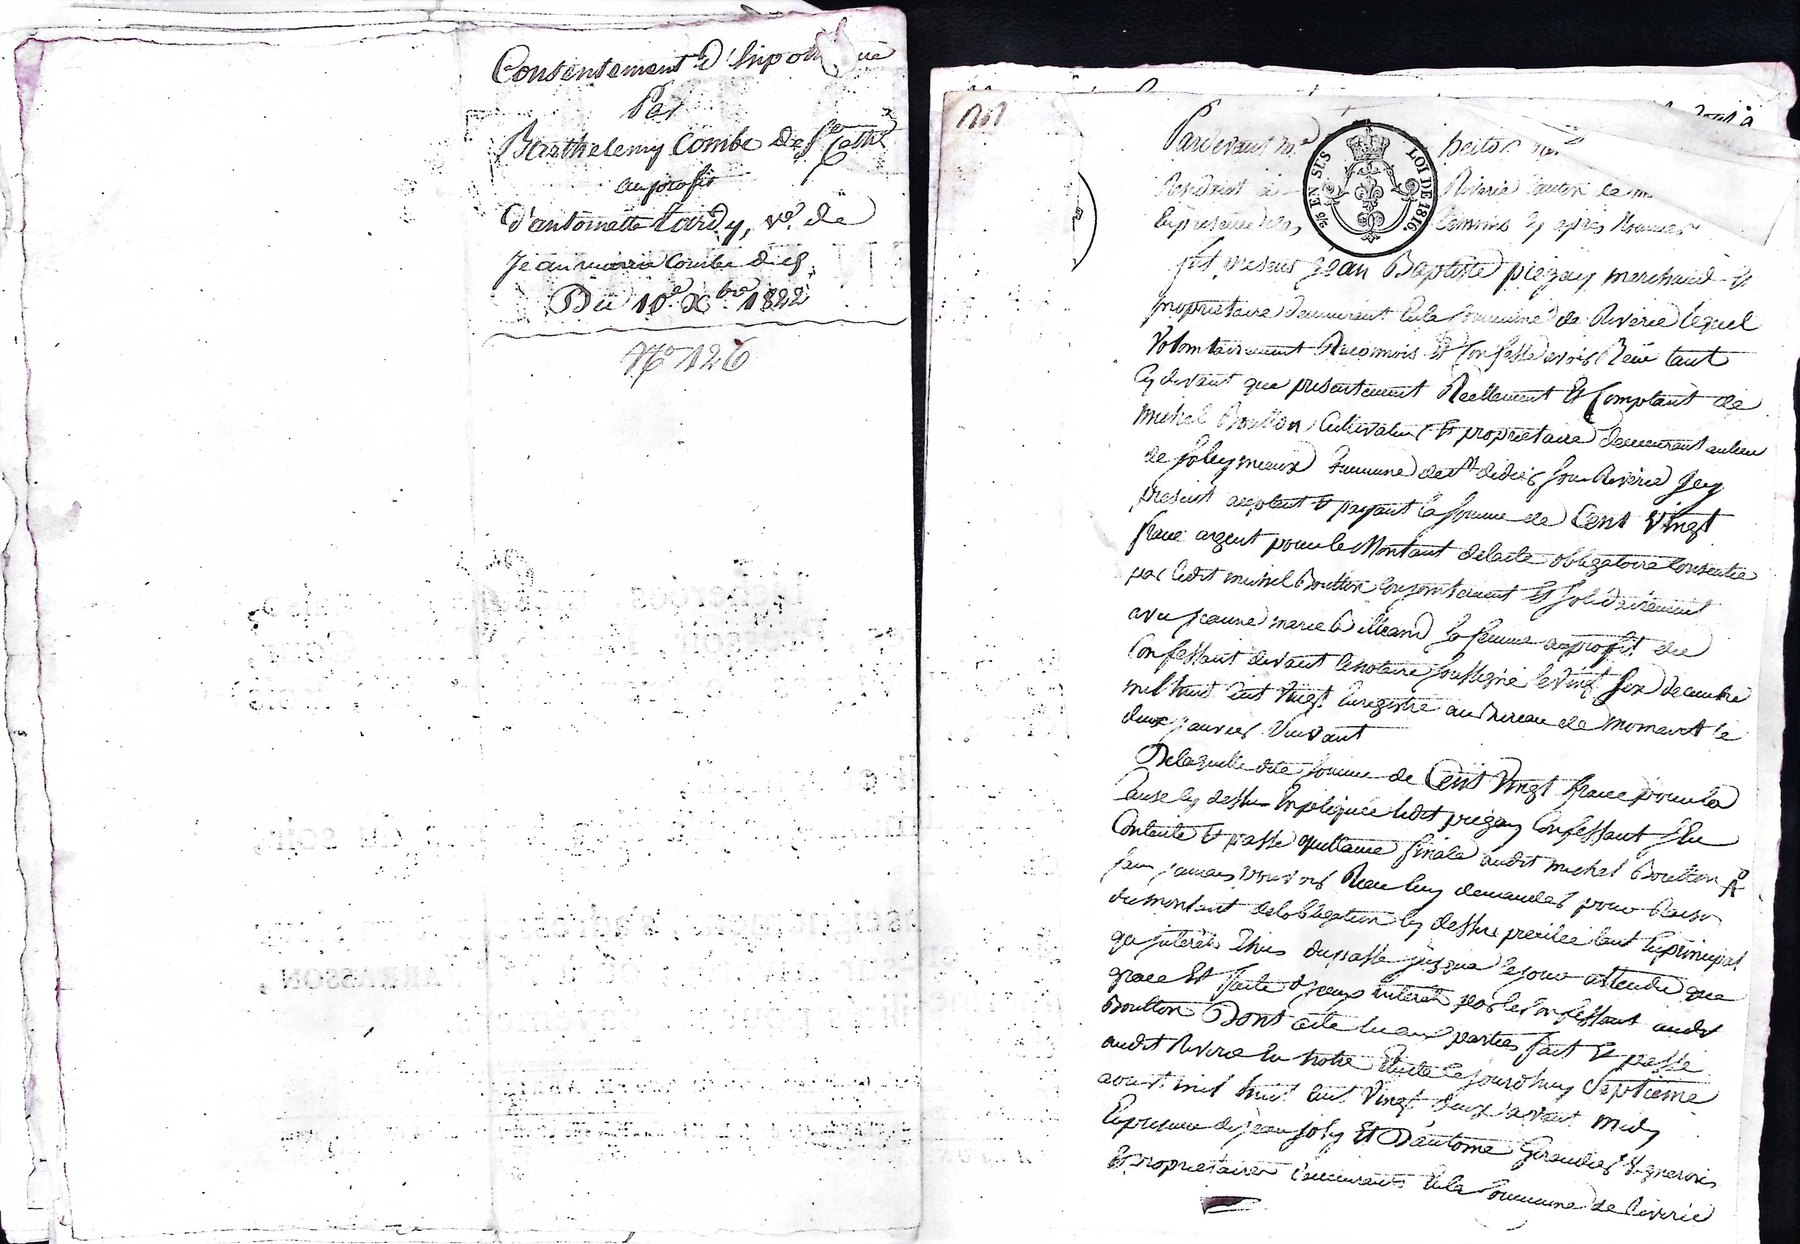 Consentement d'hipothèque
Par
Barthelemy Combe de Ste Cathe
au profit
d'antoinette Tardy, ve. de
Jean marie Combe
Du 10e Xbre 1822
No 126
Pardevant me hector
Residant à Riverie Canton de
En presence des temoins cy après Nommés
fut present Jean Baptiste piegay marchand et
proprietaire demeurant en la Commune de Riverie lequel
Volontairement Reconnois et Confesse avoir Reçu tant
Cy devant que presentement Reellement Et Comptant de
michel Boutton Cultivateur et proprietaire demeurant au lieu
de Soleymieux Commune de st didier sous Riverie Icy
present acceptant et payant la somme de Cent Vingt
franc argent pour le Montant de lacte obligatoire Consentie
par ledit michel Boutton Conjointement Et solidairement
avec jeanne marie sa femme au profit du
Confessant devant le notaire soussigné le Vingt six decembre
mil huit Cent Vingt Enregistré au Bureau de mornant le
deux janvier Suivant
De laquelle dite somme de Cent Vingt franc pour la
Cause Cy dessus Expliquée ledit piegay Confessant sEn
Contente Et passe quittance finale audit michel Boutton
sans jamais pouvoir Rien luy demander pour Raison
du montant de lobligation Cy dessus precitée tant En principal
qu'interêts Dhus du passé jusqua le jour attendu que
grace Est faite d'yceux interêts par le Confessant audit
Boutton Dont acte lu aux parties fait Et passé
audit Riverie En notre Etude le jourdhuy Septieme
aoust mil huit Cent Vingt deux avant midy
En presence de jean joly Et D'antoine Giraudier Vignerons
Et proprietaires demeurants En la Commune de Riverie
EN SUS
LOI DE 1816.